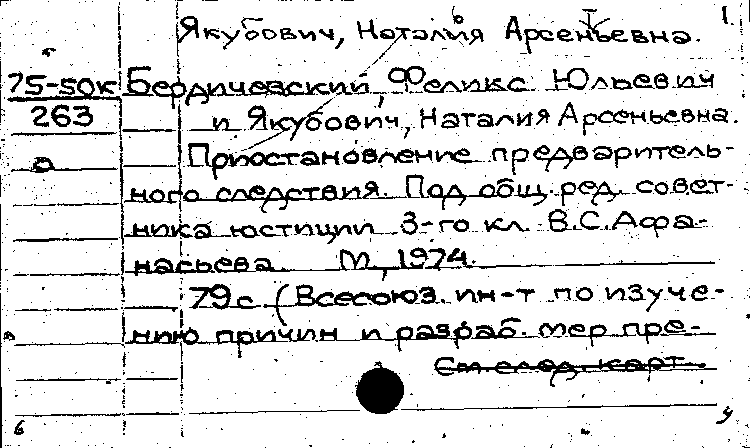 1.
Якубович, Наталия Арсеньевна.
75-50к Бердичевский, Феликс Юльевич
263 и Якубович, Наталия Арсеньевна.
а Приостановление предваритель-
ного следствия. Под общ. ред. совет-
ника юстиции 3-го кл. В.С. Афа-
насьева. М., 1974.
79 с. (Всесоюз. ин-т по изуче-
нию причин и разраб. мер пре-
См. след. карт.
6 у